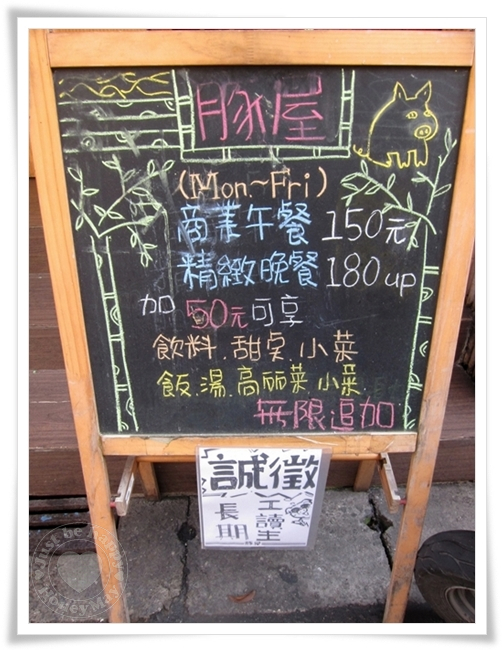 豚屋
(Mon~Fri)
商業午餐 150元
精緻晚餐 180up
加 50元可享
飲料.甜桌.小菜
飯.湯.高丽菜.小菜.
無限追加
誠徵
長期
工讀生